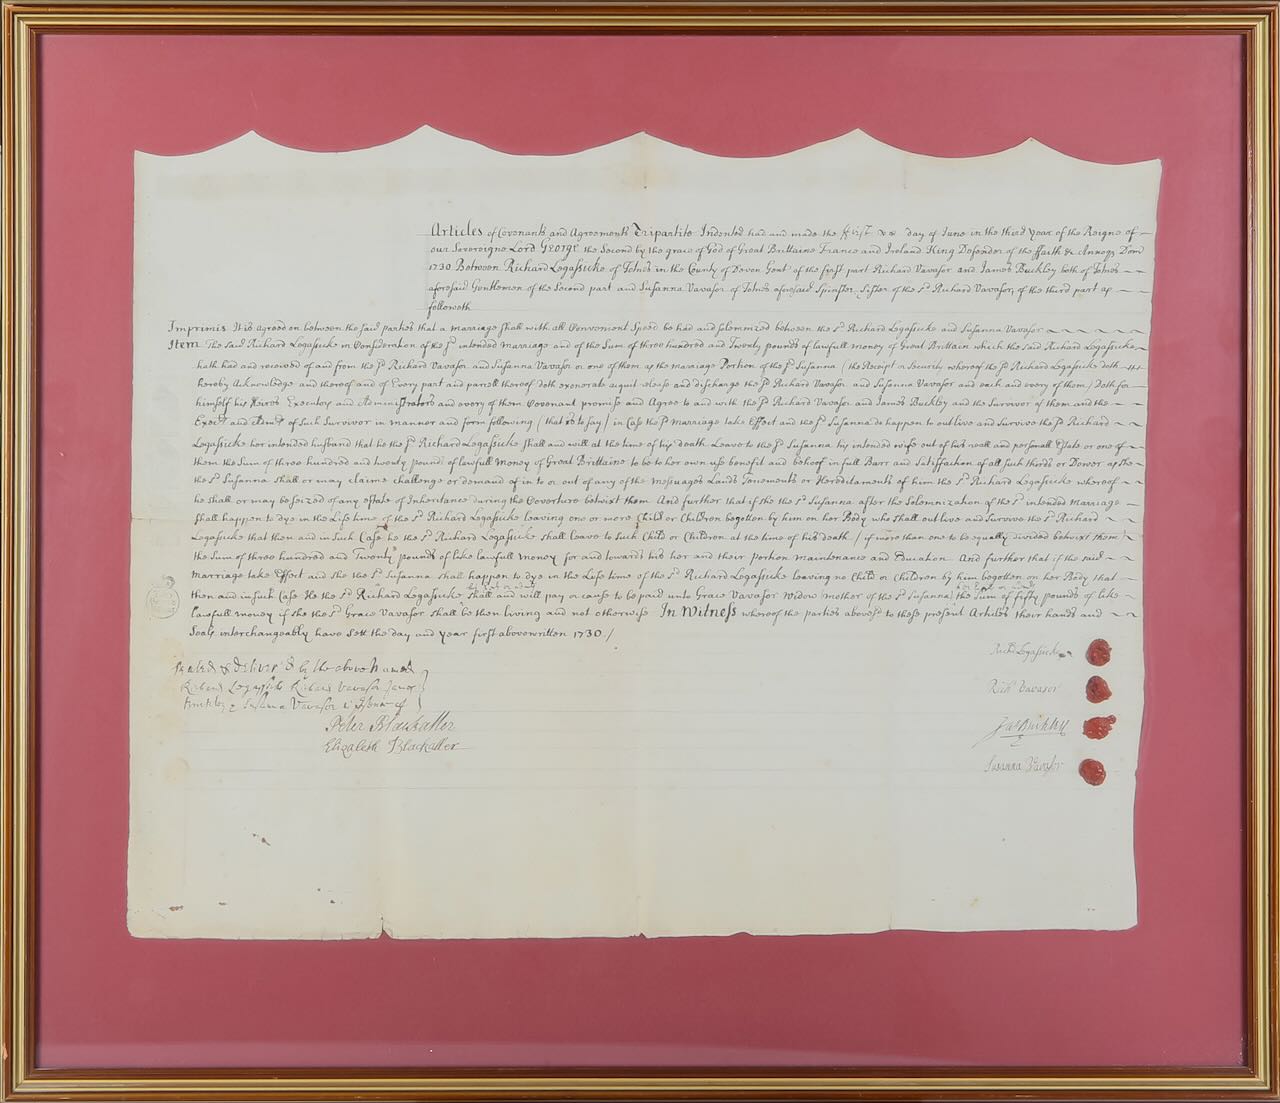 Articles of Covenants and Agreements Tripartite Indented had and made the ffirst day of June in the third year of the Reigne of
our Sovereigne Lord George the Second by the grace of God of Great Brittaine France and Ireland King Defender of the ffaith &c Annoq Dom
1730 Between Richard Legassicke of Totnes in the County of Devon Gent of the first part Richard Vavasor and James Buckley both of Totnes
aforesaid Gentlemen of the Second part and Susanna Vavasor of Totnes aforesaid Spinster Sister of the sd Richard Vavasor, of the third part as
followeth
Imprimis It is Agreed on between the said parties that a marriage shall with all Convenient Speed be had and solemnized between the sd Richard Legassicke and Susanna Vavasor
Item The said Richard Legassicke in Consideration of the sd intended Marriage and of the Sum of three hundred and Twenty pounds of lawfull money of Great Brittain which the said Richard Legassicke
hath had and received of and from the sd Richard Vavasor and Susanna Vavasor or one of them as the Marriage Portion of the sd Susanna (the Receipt or Security whereof the sd Richard Legassicke doth
hereby Acknowledge and thereof and of Every part and parcell thereof doth exonerate acquit release and discharge the sd Richard Vavasor and Susanna Vavasor and each and every of them) Doth for
himself his Heires Executors and Administrators and every of them Covenant promise and Agree to and with the sd Richard Vavasor and James Buckley and the Survivor of them and the
Execrs and Admrs of Such Survivor in manner and form following (that is to say) in Case the sd Marriage take Effect and the sd Susanna do happen to outlive and Survive the sd Richard
Legassicke her intended husband that he the sd Richard Legassicke shall and will at the time of his death Leave to the sd Susanna his intended wife out of his reall and personall Estate or one of
them the Sum of three hundred and twenty pounds of lawfull Money of Great Brittaine to be to her own use benefit and behoof in full Barr and Satisfaction of all such thirds or Dower as she
the sd Susanna shall or may claime challenge or demand of in to or out of any of the Messuages Lands Tenements or Hereditaments of him the sd Richard Legassicke whereof
he shall or may be seized of any estate of Inheritance during the Coverture betwixt them And further that if she the sd Susanna after the Solemnization of the sd intended Marriage
shall happen to dye in the Life time of the sd Richard Legassicke leaving one or more Child or Children begotten by him on her Body who shall out live and Survive the sd Richard
Legassicke that then and in such Case he the sd Richard Legassicke shall leave to such Child or Children at the time of his death (if more than one to be equally divided betwixt them)
the Sum of three hundred and Twenty pounds of like lawfull money for and towards his her and their portion maintenance and Education And further that if the said
Marriage take Effect and she the sd Susanna shall happen to dye in the Life time of the sd Richard Legassicke leaving no Child or Children by him begotten on her Body that
then and in such Case He the sd Richard Legassicke shall and will pay or cause to be paid unto Grace Vavasor Widow mother of the sd Susanna the Sum of fifty pounds of like
lawfull money if she the sd Grace Vavasor shall be then living and not otherwise In Witness whereof the parties abovesd to these present Articles their hands and
Seals interchangeably have Sett the day and year first above written 1730
Sealed & deliver'd by the above Named
Richard Legassicke Richard Vavasor James
Buckley & Susanna Vavasor in presence of
Peter Blackaller
Elizabeth Blackaller
Richd Legassicke
Rich Vavasor
Jas Buckley
Susanna Vavasor